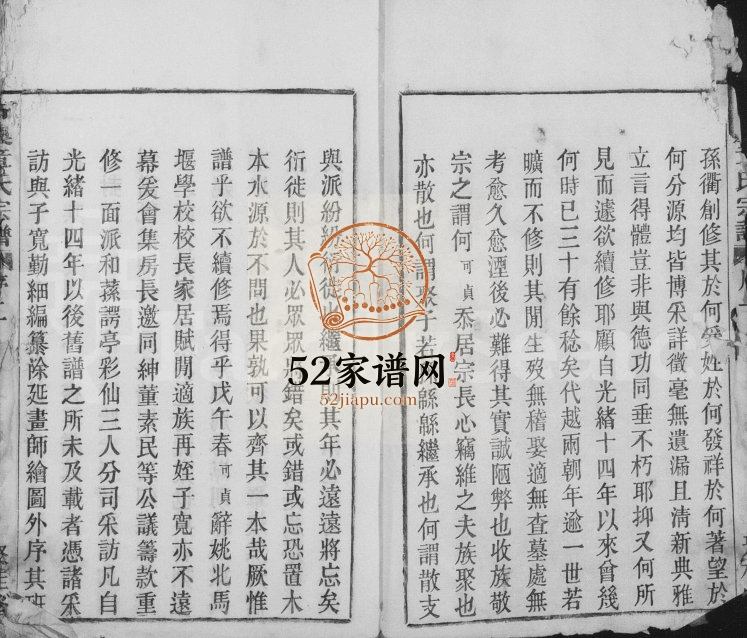 孫衢創修其於何受姓於何發祥於何著望於
何分源均皆博采詳徵毫無遺漏且清新典雅
立言得體豈非與德功同垂不朽耶抑又何所
見而遽欲續修耶顧自光緒十四年以來曾幾
何時已三十有餘稔矣代越兩朝年逾一世若
曠而不修則其間生歿無稽娶適無查墓處無
考愈久愈湮後必難得其實誠陋弊也收族敬
宗之謂何可貞忝居宗長心竊維之夫族聚也
亦散也何謂聚子若孫緜緜繼承也何謂散支
與派紛紛衍徙也繼承則其年必遠遠將忘矣
衍徙則其人必眾眾則錯矣或錯或忘恐置木
本水源於不問也果孰可以齊其一本哉厥惟
譜乎欲不續修焉得乎戊午春可貞辭姚北馬
堰學校校長家居賦閒適族再姪子寬亦不遠
幕爰會集房長邀同紳董素民等公議籌款重
修一面派和蓀諤亭彩仙三人分司采訪凡自
光緒十四年以後舊譜之所未及載者憑諸采
訪與子寬勤細編纂除延畫師繪圖外序其班
章氏宗譜
52家谱网
52jiapu.com